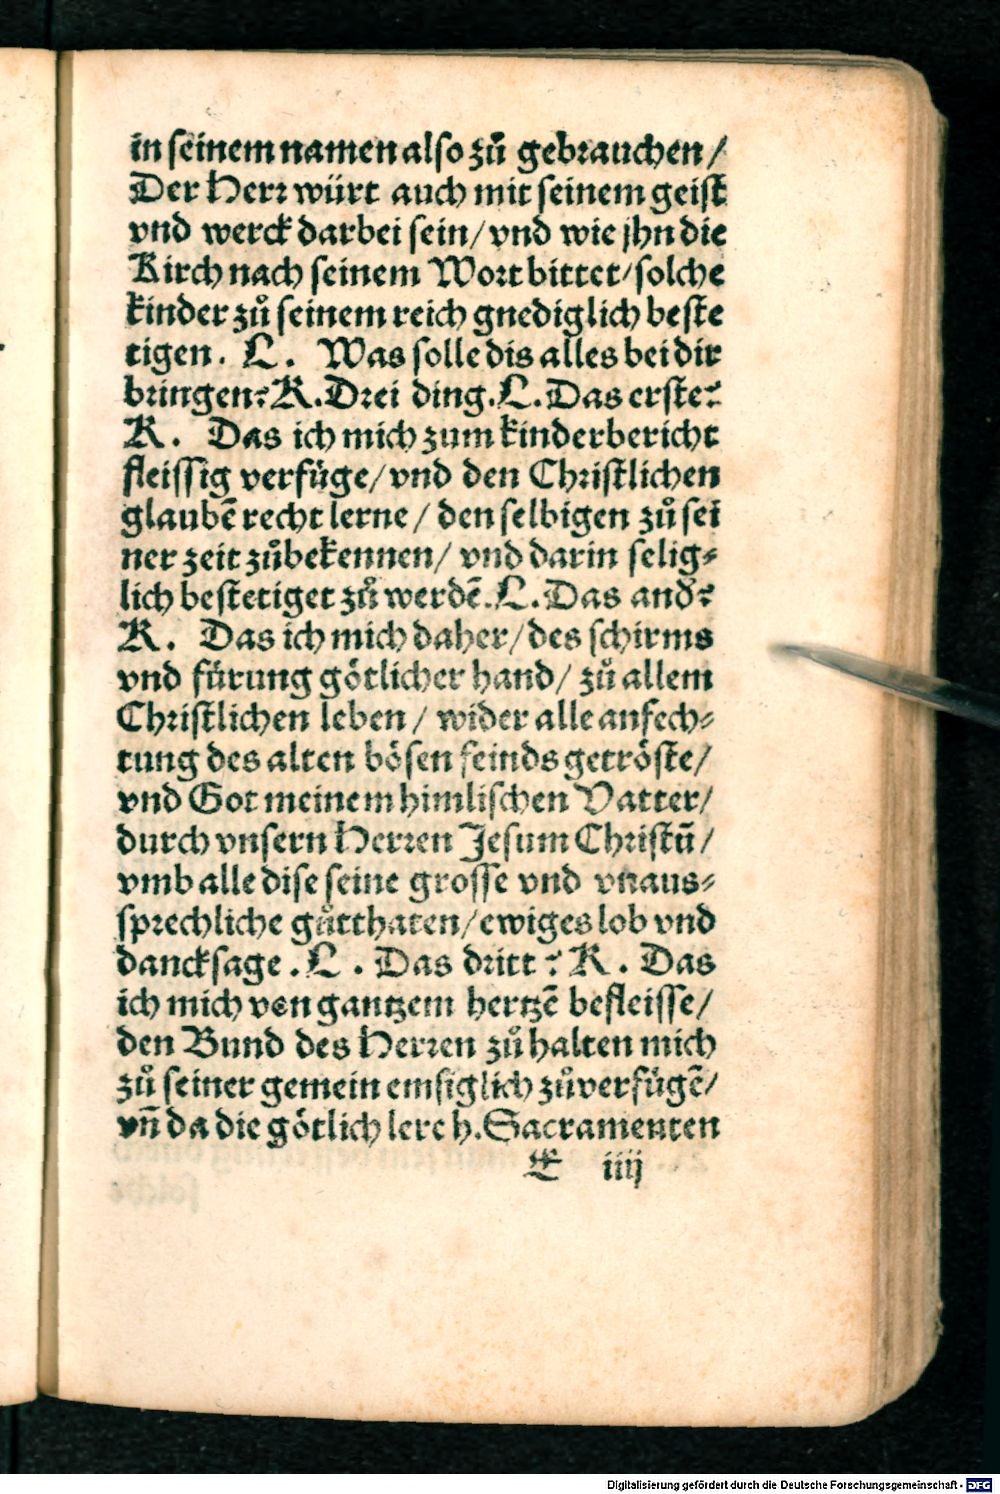 in seinem namen also zů gebrauchen /
Der Herr würt auch mit seinem geist
vnd werck darbei sein / vnd wie jhn die
Kirch nach seinem Wort bittet / solche
kinder zů seinem reich gnediglich beste
tigen . L . Was solle dis alles bei dir
bringen? K. Drei ding. L. Das erste?
K . Das ich mich zum kinderbericht
fleissig verfüge / vnd den Christlichen
glaubē recht lerne / den selbigen zů sei
ner zeit zůbekennen / vnd darin selig⸗
lich bestetiget zů werdē. L. Das and̕?
K . Das ich mich daher / des schirms
vnd fürung götlicher hand / zů allem
Christlichen leben / wider alle anfech⸗
tung des alten bösen feinds getröste /
vnd Got meinem himlischen Vatter /
durch vnsern Herren Jesum Christū /
vmb alle dise seine grosse vnd vnaus⸗
sprechliche gůtthaten / ewiges lob vnd
dancksage . L . Das dritt ? K . Das
ich mich von gantzem hertzē befleisse /
den Bund des Herren zů halten mich
zů seiner gemein emsiglich zůverfügē /
vn̄ da die götlich lere h. Sacramenten
E iiij
Digitalisierung gefördert durch die Deutsche Forschungsgemeinschaft - DFG